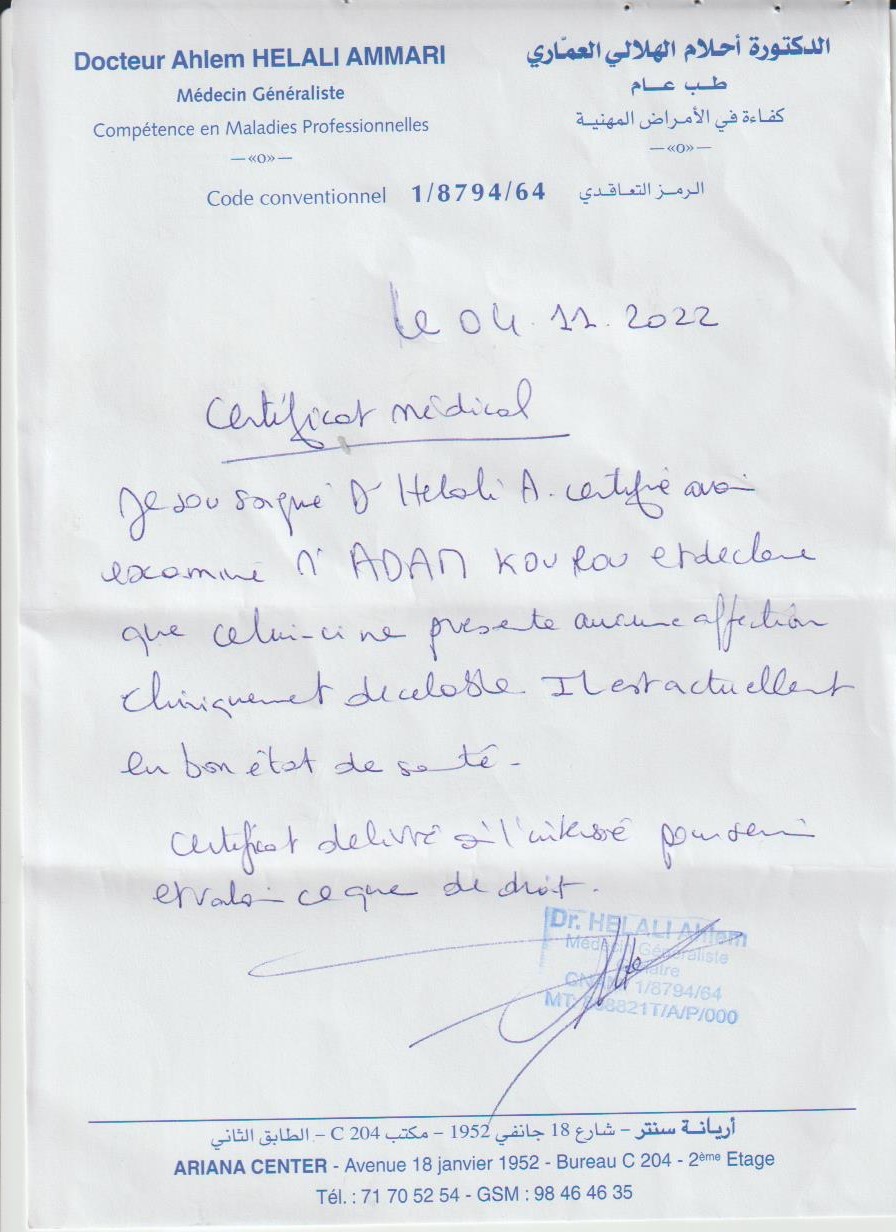 Docteur Ahlem HELALI AMMARI
Médecin Généraliste
Compétence en Maladies Professionnelles
—«o»—
الدكتورة أحلام الهلالي العمّاري
طـب عـــام
كفـاءة في الأمـراض المهنيـة
—«o»—
Code conventionnel 1/8794/64 الـرمـز التعـاقـدي
le 04.11.2022
Certificat médical
Je sousigné Dr Helali A. certifie avoir
examiné Mr ADAM KOUROU et declare
que celui-ci ne présente aucune affection
cliniquement decelable. Il est actuellemt
en bon état de santé -
Certificat delivré à l'interessé pour servir
et valoir ce que de droit.
Dr. HELALI Ahlem
Médecin Généraliste
1/8794/64
MT: 8821T/A/P/000
أريـانـة سنتـر – شارع 18 جانفي 1952 – مكتب C 204 – الطابق الثاني
ARIANA CENTER - Avenue 18 janvier 1952 - Bureau C 204 - 2ème Etage
Tél. : 71 70 52 54 - GSM : 98 46 46 35